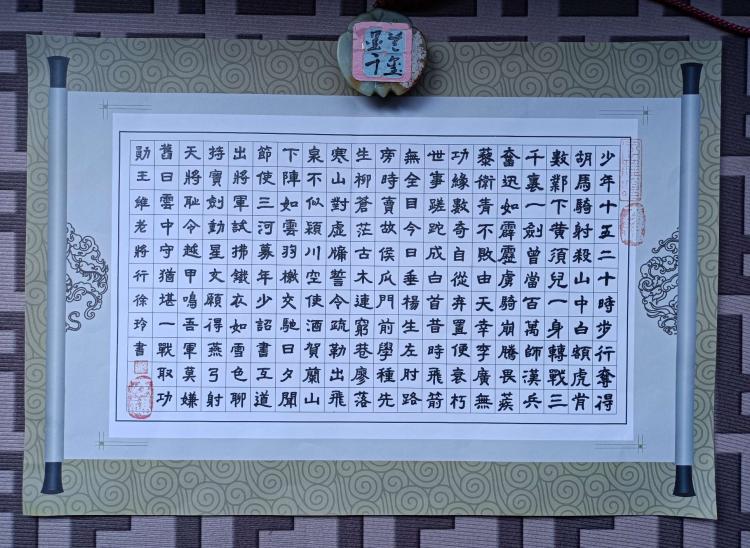 少年十五二十時步行奪得
胡馬騎射殺山中白額虎肯
數鄴下黃須兒一身轉戰三
千裏一劍曾當百萬師漢兵
奮迅如霹靂虜騎崩騰畏蒺
藜衛青不敗由天幸李廣無
功緣數奇自從弃置便衰朽
世事蹉跎成白首昔時飛箭
無全目今日垂楊生左肘路
旁時賣故侯瓜門前學種先
生柳蒼茫古木連窮巷廖落
寒山對虛牖誓令疏勒出飛
泉不似潁川空使酒賀蘭山
下陣如雲羽檄交馳日夕聞
節使三河募年少詔書五道
出將軍試拂鐵衣如雪色聊
持寶劍動星文願得燕弓射
天將恥令越甲鳴吾軍莫嫌
舊日雲中守猶堪一戰取功
勛王維老將行徐玲書